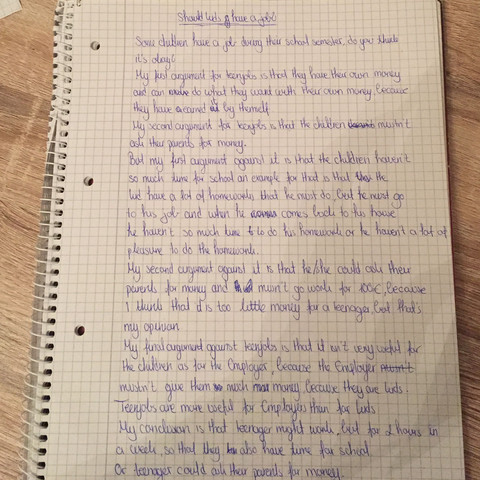 Should kids have a job?
Some children have a job during their school semester, do you think
it's okay?
My first argument for teenjobs is that they have their own money
and can do what they want with their own money, because
they have earned it by themself.
My second argument for teenjobs is that the children mustn't
ask their parents for money.
But my first argument against it is that the children haven't
so much time for school an example for that is that the
kid have a lot of homeworks that he must do, but he must go
to his job and when he comes back to his house
he haven't so much time to do his homework or he haven't a lot of
pleasure to do the homework.
My second argument against it is that he/she could ask their
parents for money and musn't go work for 100€, because
I think that it is too little money for a teenager, but that's
my opinion
My final argument against teenjobs is that it isn't very useful for
the children as for the Employer, because the Employer mustn't
mustn't give them so much money because they are kids.
Teenjobs are more useful for Employers than for kids
My conclusion is that teenager might work, but for 2 hours in
a week, so that they also have time for school.
Or teenager could ask their parents for money.